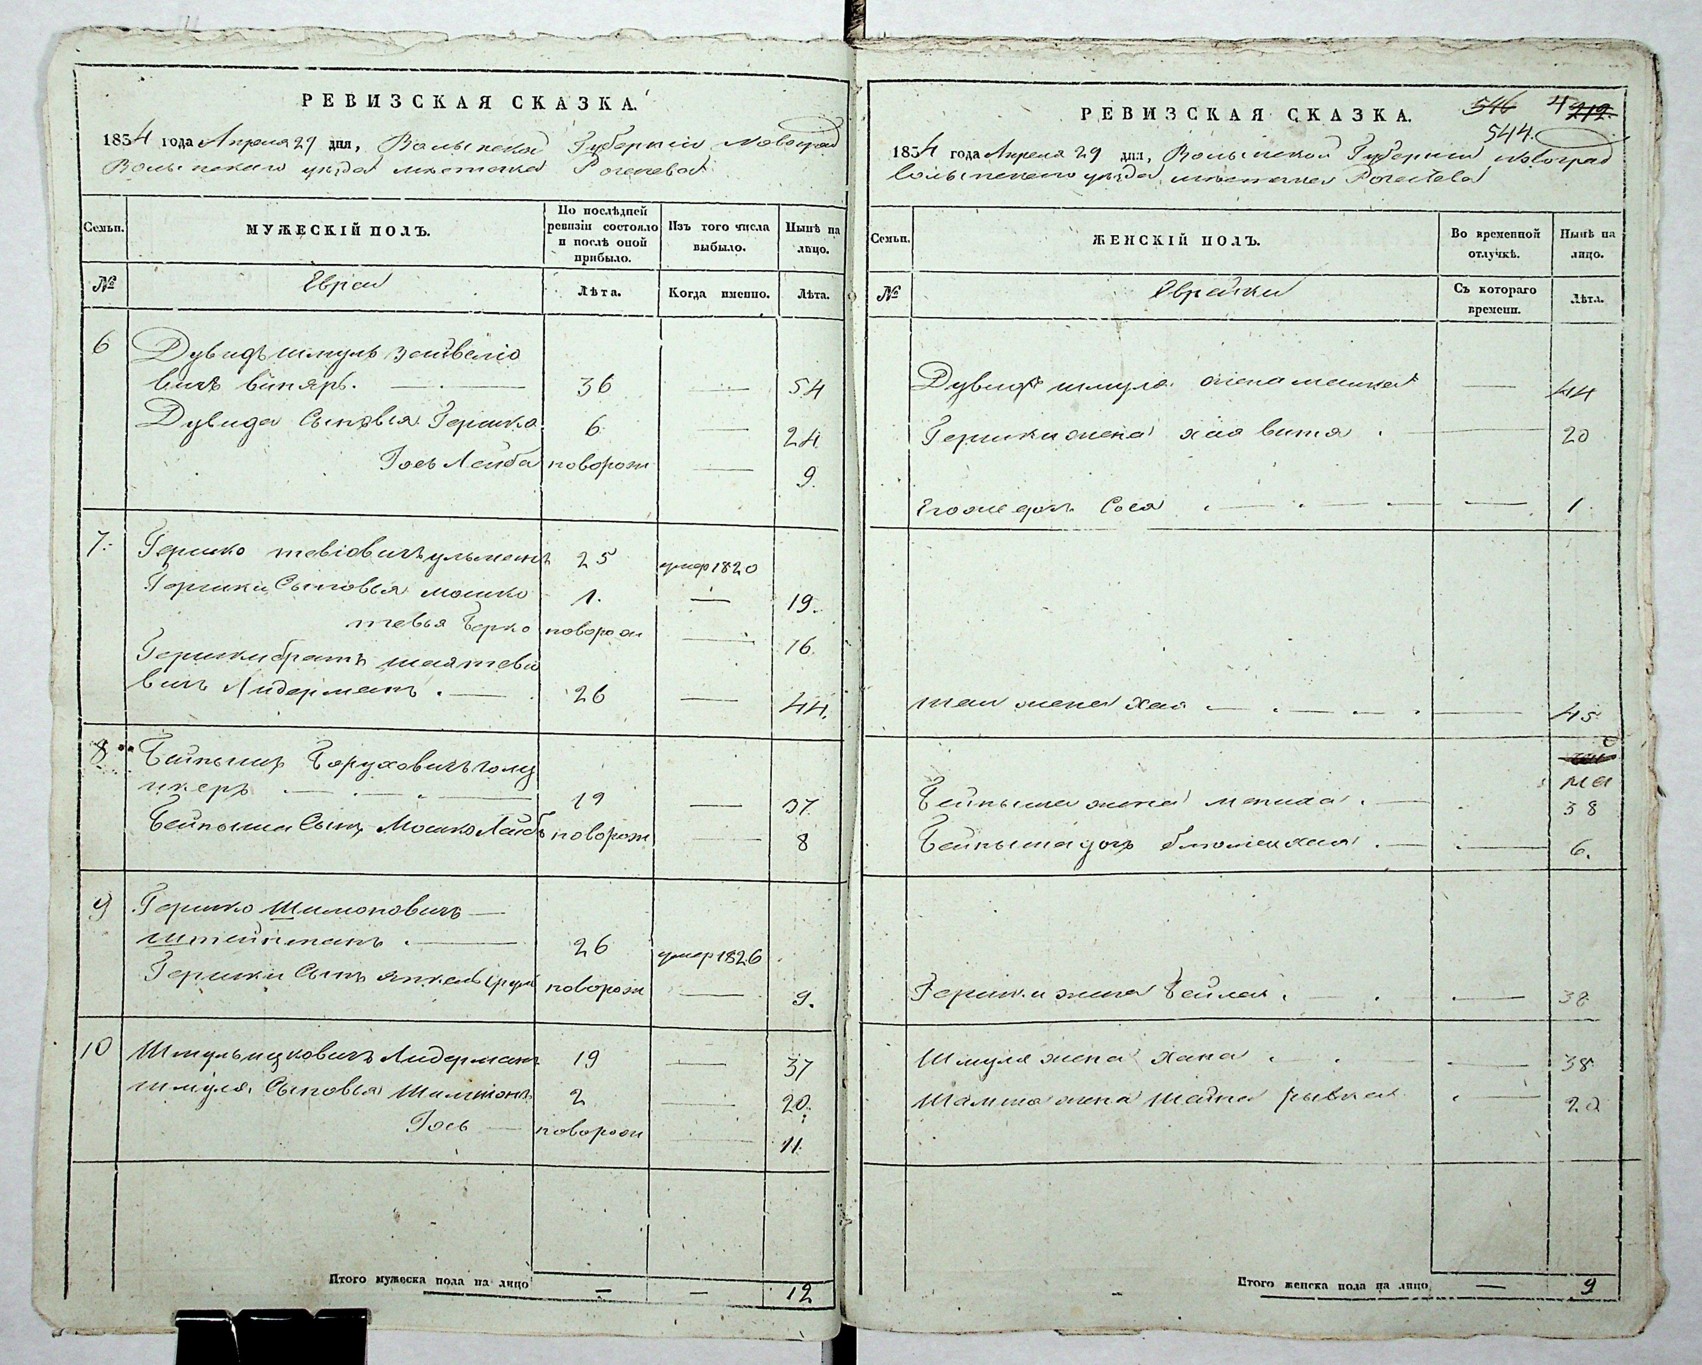 РЕВИЗСКАЯ СКАЗКА.
1834 года Апреля 29 дня, Волынской Губернии Новоград
Волынского уезда местечка Рогачева
Семьи.
МУЖЕСКІЙ ПОЛЪ.
По послѣдней ревизіи состояло и послѣ оной прибыло.
Изъ того числа выбыло.
Нынѣ на лицо.
№
Евреи
Лѣта.
Когда именно.
Лѣта.
6
Дувидъ Шмуль
вичъ Виняръ. 36 — 54
Дувида Сыновья Гершко 6 — 24
Лейба новорож — 9.
7. Гершко Тевіовичъ 25 умер 1820
Гершки Сыновья Мошко 1. — 19.
Тевья Берко новорож — 16.
Гершки братъ Шая Тевіо
вичъ Лидерманъ. 26 — 44.
8 Бейнышъ Боруховичъ
19 — 37.
Бейныша Сынъ Мошко Лейба новорож — 8
9 Гершко Шимоновичъ —
Штейнманъ. 26 умер 1826
Гершки Сынъ Янкель новорож — 9.
10 Шмуль Ицковичъ Лидерманъ 19 — 37
Шмуля Сыновья 2 — 20.
Іось — новорож — 11.
Итого мужеска пола на лицо — — 12
РЕВИЗСКАЯ СКАЗКА.
546 4 212.
544.
1834 года Апреля 29 дня, Волынской Губернии Новоград
Волынского уезда местечка Рогачева
Семьи.
ЖЕНСКІЙ ПОЛЪ.
Во временной отлучкѣ.
Нынѣ на лицо.
№
Еврейки
Съ котораго времени.
Лѣта.
Дувида Шмуля жена — 44
Гершки жена Хая — 20
Его же дочь Сося — 1
Шаи жена Хая — 45
Бейныша жена — 38
Бейныша дочь — 6.
Гершки жена Бейла. — 38
Шмуля жена Хана. — 38
жена Шейна Рывка — 20
Итого женска пола на лицо — 9